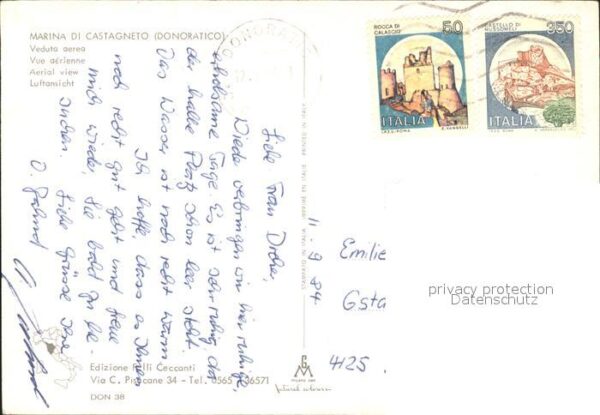 MARINA DI CASTAGNETO (DONORATICO)
Veduta aerea
Vue aérienne
Aerial view
Luftansicht
ROCCA DI
CALASCIO
50
ITALIA
CASTELLO DI
MUSSOMELI
350
ITALIA
11.9.84
Liebe Frau
Wieder verbringen wir hier ruhige,
erholsame Tage. Es ist sehr ruhig, da
der halbe Platz schon leer steht.
Das Wasser ist noch recht warm
Ich hoffe, dass es Ihnen
noch recht gut geht und freue
mich wieder, Sie bald zu be
suchen. Liebe Grüsse Ihre
Emilie
Gsta
4125.
privacy protection
Datenschutz
Edizione F.lli Ceccanti
Via C. Piscane 34 - Tel. 0565 - 36571
DON 38